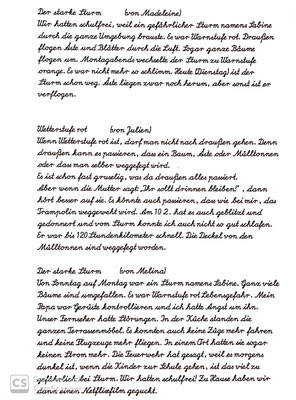 Der starke Sturm (von Madeleine)
Wir hatten schulfrei, weil ein gefährlicher Sturm namens Sabine
durch die ganze Umgebung brauste. Es war Warnstufe rot. Draußen
flogen Äste und Blätter durch die Luft. Sogar ganze Bäume
flogen um. Montagabends wechselte der Sturm zu Warnstufe
orange. Es war nicht mehr so schlimm. Heute (Dienstag) ist der
Sturm schon weg. Äste liegen zwar noch herum, aber sonst ist er
verflogen.
Wetterstufe rot (von Julien)
Wenn Wetterstufe rot ist, darf man nicht nach draußen gehen. Denn
draußen kann es passieren, dass ein Baum, Äste oder Mülltonnen
oder das man selber weggefegt wird.
Es ist schon fast gruselig, was da draußen alles passiert.
Aber wenn die Mutter sagt: „Ihr sollt drinnen bleiben!", dann
hört besser auf sie. Es könnte auch passieren, das wie bei mir, das
Trampolin weggeweht wird. Am 10.2. hat es auch geblitzt und
gedonnert und vom Sturm konnte ich auch nicht so gut schlafen.
Er war bis 120 Stundenkilometer schnell. Die Deckel von den
Mülltonnen sind weggefegt worden.
Der starke Sturm (von Melina)
Von Sonntag auf Montag war ein Sturm namens Sabine. Ganz viele
Bäume sind umgefallen. Es war Warnstufe rot Lebensgefahr. Mein
Papa war Geräte kontrollieren und ich hatte Angst um ihn.
Unser Fernseher hatte Störungen. In der Küche standen die
ganzen Terrassenmöbel. Es konnten auch keine Züge mehr fahren
und keine Flugzeuge mehr fliegen. In einem Ort hatten sie sogar
keinen Strom mehr. Die Feuerwehr hat gesagt, weil es morgens
dunkel ist, wenn die Kinder zur Schule gehen, ist das viel zu
gefährlich bei Sturm. Wir hatten schulfrei! Zu Hause haben wir
dann einen Netflixfilm geguckt.
CS